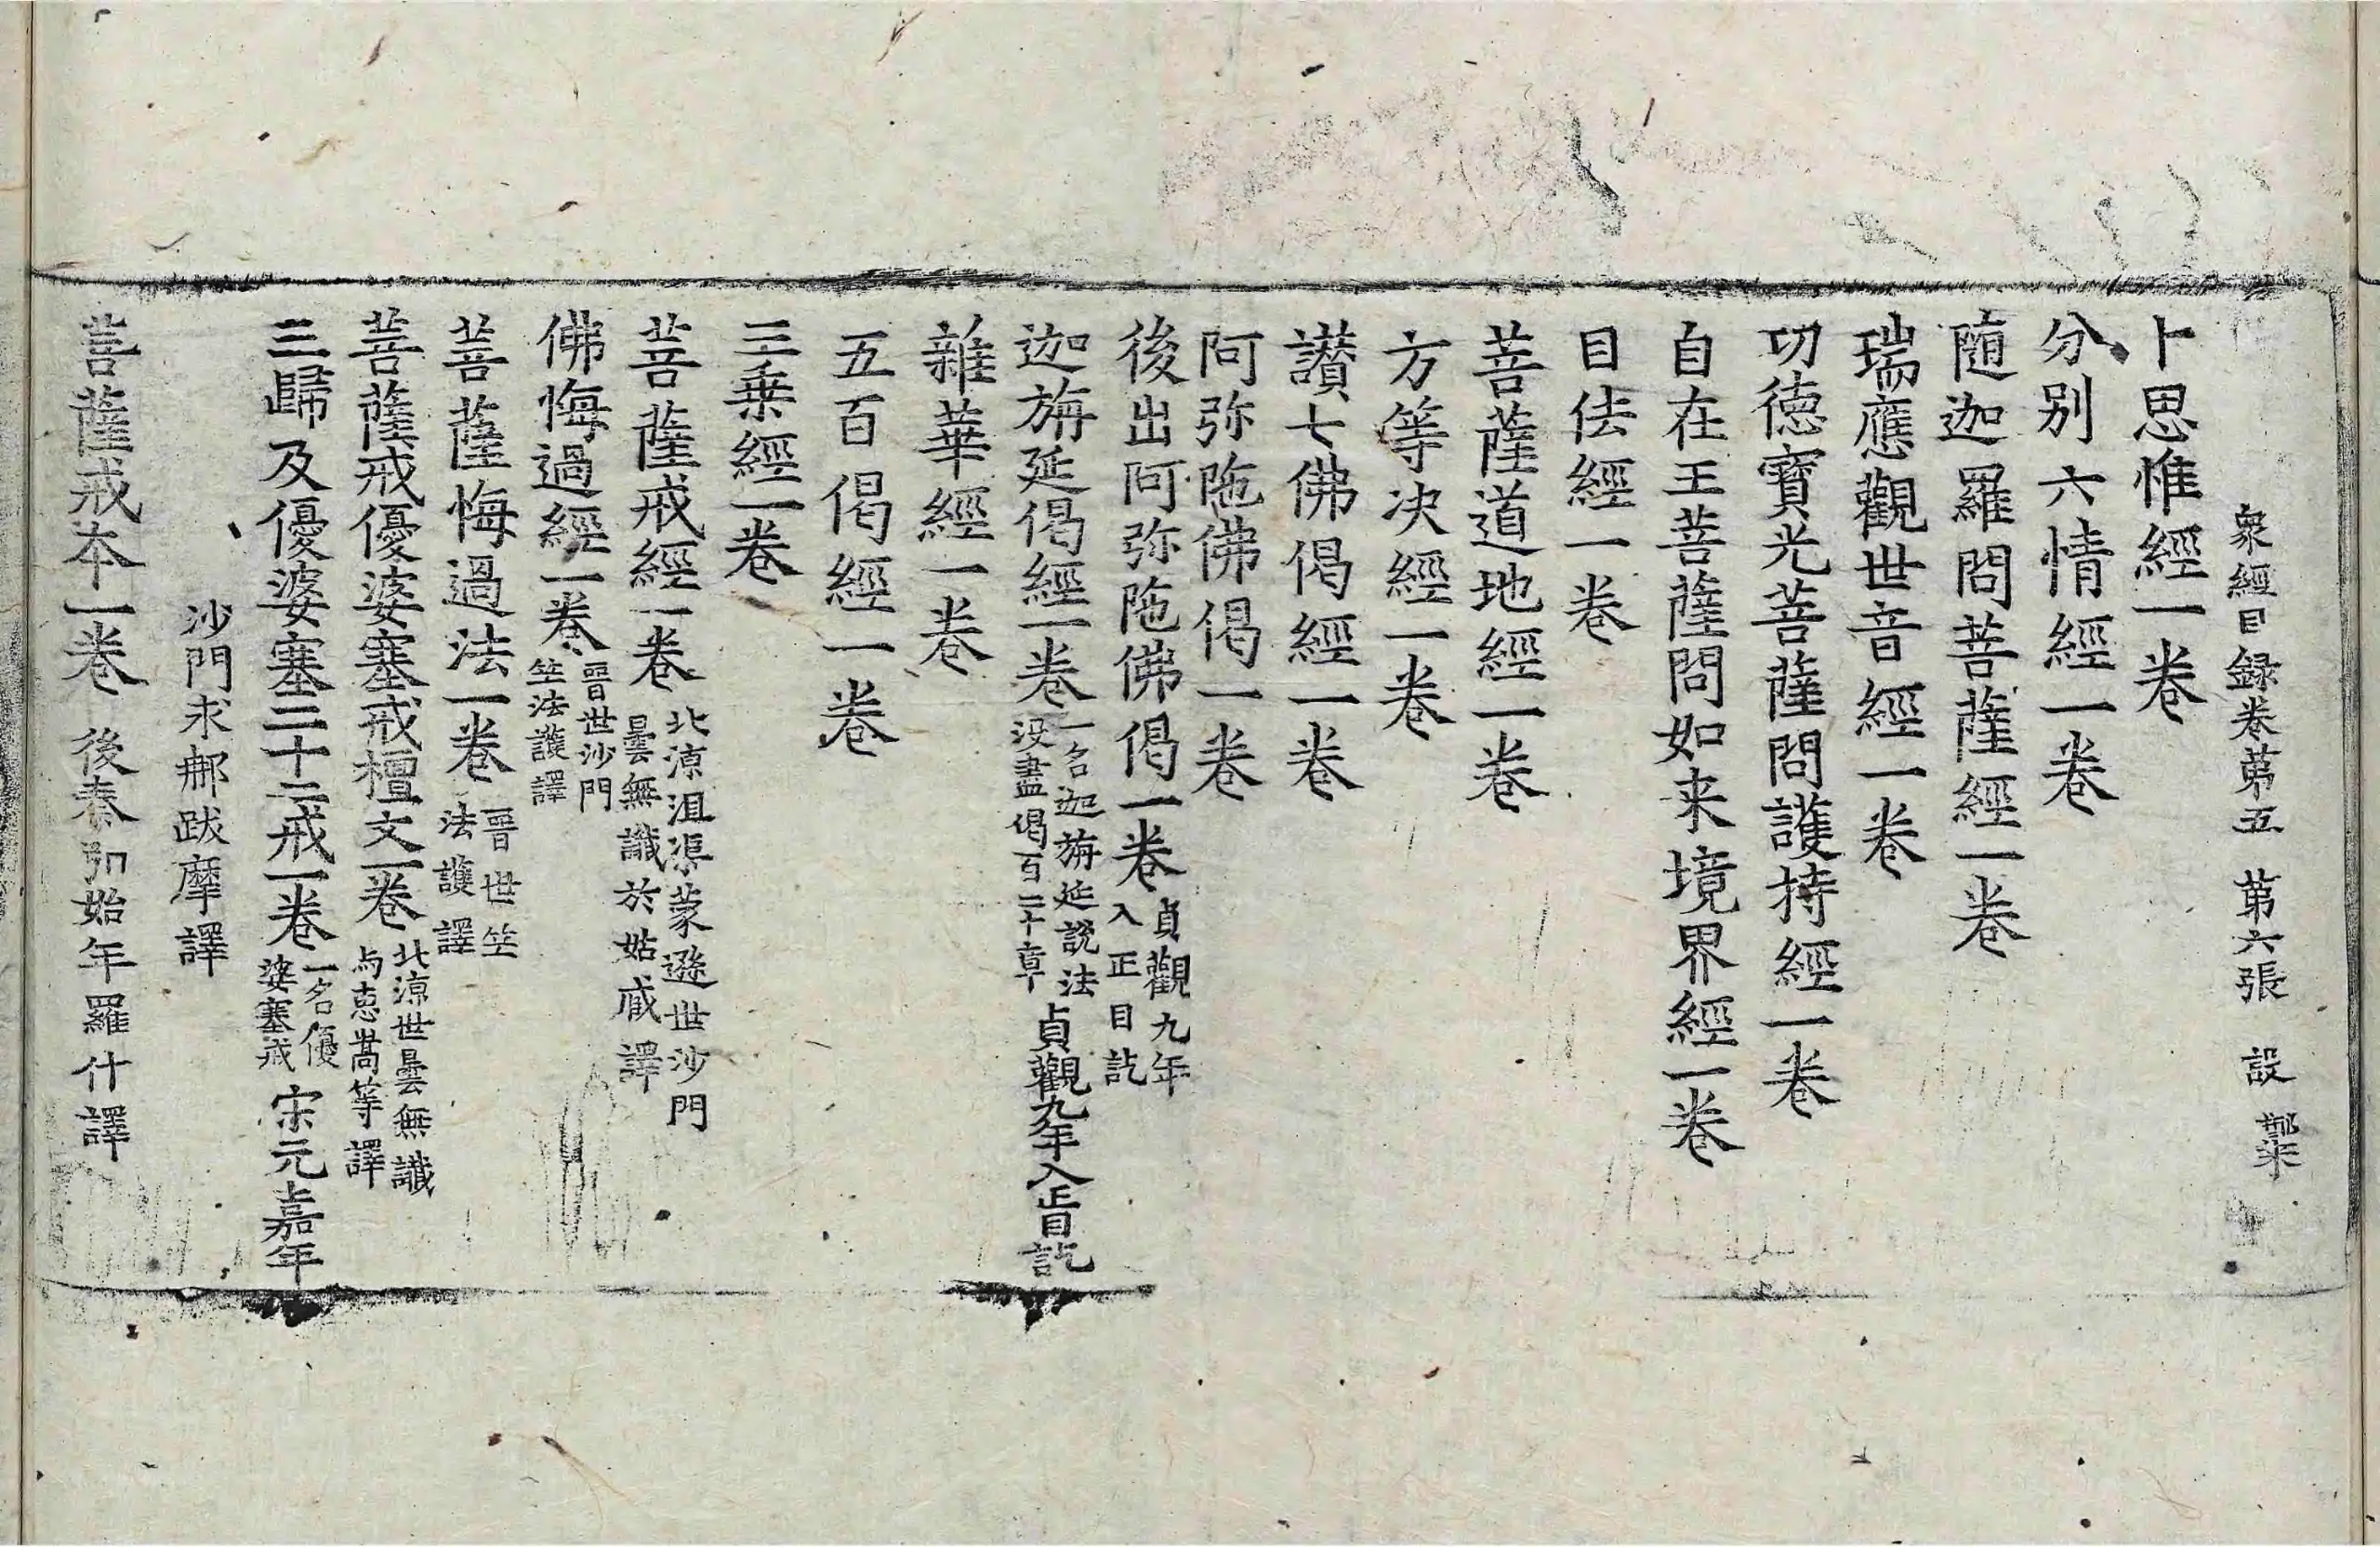 衆經目録卷第五 第六張 設
卜思惟經一卷
分別六情經一卷
随迦羅問菩薩經一卷
瑞應觀世音經一卷
功德寶光菩薩問護持經一卷
自在王菩薩問如来境界經一卷
目佉經一卷
菩薩道地經一卷
方等决經一卷
讃七佛偈經一卷
阿弥陁佛偈一卷
後出阿弥陁佛偈一卷 貞觀九年入正目訖
迦旃延偈經一卷 一名迦旃延說法没盡偈百二十章 貞觀九年入正目訖
雜華經一卷
五百偈經一卷
三乗經一卷
菩薩戒經一卷 北涼沮渠蒙遜世沙門曇無讖於姑臧譯
佛悔過經一卷 晋世沙門竺法護譯
菩薩悔過法一卷 晋世竺法護譯
菩薩戒優婆塞戒檀文一卷 北涼世曇無讖与恵嵩等譯
三歸及優婆塞二十二戒一卷 一名優婆塞戒 宋元嘉年
沙門求那跋摩譯
菩薩戒本一卷 後秦弘始年羅什譯